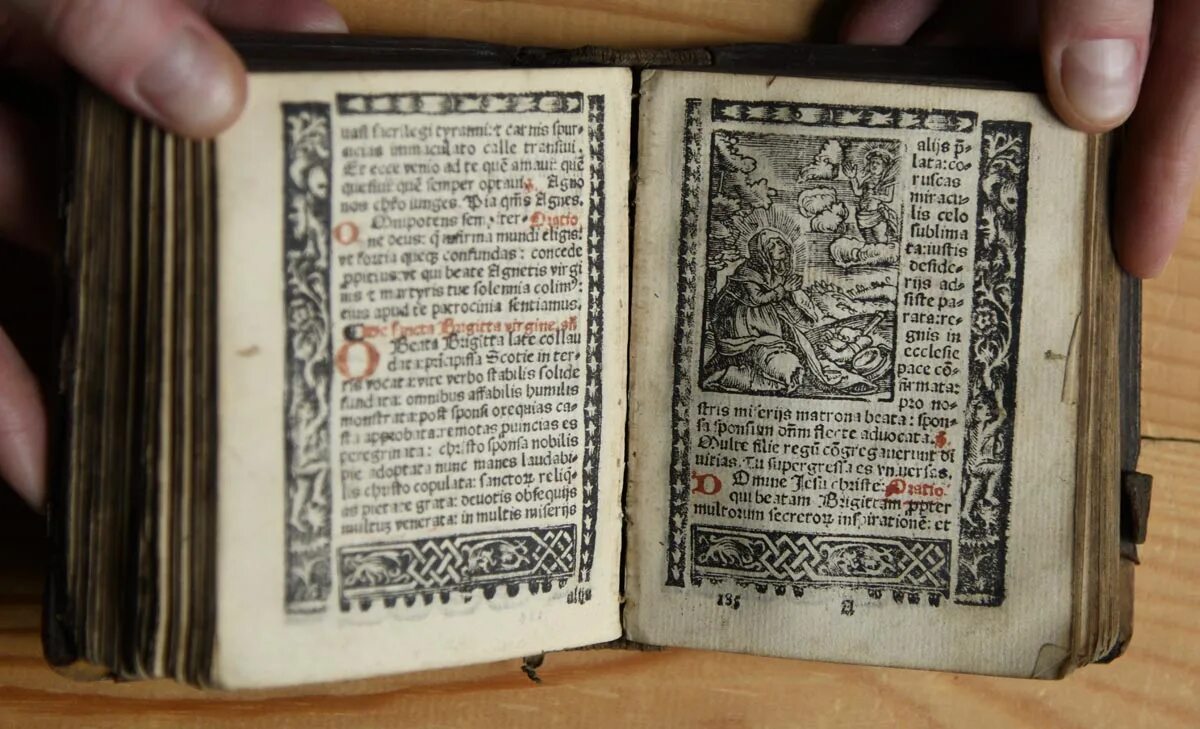 uasi sacrilegi tyranni: ⁊ carnis spur⸗
cicias immaculato calle transiui.
Et ecce venio ad te quē amaui: quē
quesiui quē semper optaui. Agno
nos chr̄o iunges. Pia qm̄s Agnes.
Omnipotens sempiter⸗ Oratio.
ne deus: q̄ infirma mundi eligis:
vt fortia queq̄ confundas: concede
ꝓpitius: vt qui beate Agnetis virgi
nis ⁊ martyris tue solemnia colim⁹:
eius apud te patrocinia sentiamus.
De sancta Brigitta virgine. añ
O Beata Brigitta late collau
data: principissa Scotie in ter⸗
ris vocata: vite verbo stabilis solide
fundata: omnibus affabilis humilis
monstrata: post sponsi exequias ca⸗
sta approbata: remotas prouincias es
peregrinata: christo sponsa nobilis
pie adoptata nunc manes laudabi⸗
lis christo copulata: sanctoꝝ reliq̄⸗
as pietate grata: deuotis obsequijs
multuʒ venerata: in multis miserijs
alijs
alijs p̄⸗
lata: co⸗
ruscas
miracu⸗
lis celo
sublima
ta: iustis
deside⸗
rijs ad⸗
siste pa⸗
rata: re⸗
gnis in
ecclesie
pace cō⸗
firmata:
pro no⸗
stris miserijs matrona beata: spon⸗
sa sponsum dn̄m flecte aduocata.
Multe filie regū cōgregauerunt di
uitias. Tu supergressa es vniuersas.
Domine Jesu christe: Oratio.
qui beatam Brigittam ꝓpter
multorum secretoꝝ inspirationē: et
185 A